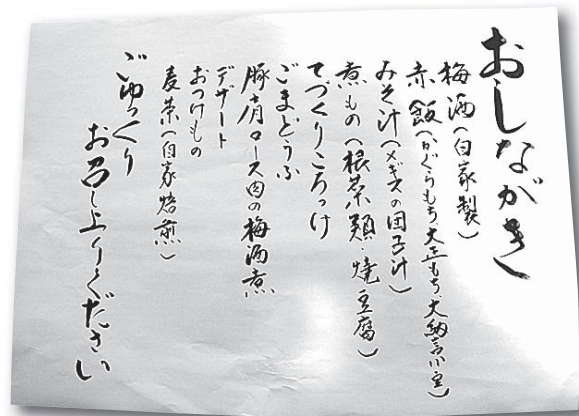 おしながき
梅酒(自家製)
赤飯(かぐらもち、大正もち、大納言小豆)
みそ汁(メギスの団子汁)
煮もの(根菜類・焼豆腐)
てづくりころっけ
ごまどうふ
豚肩ロース肉の梅酒煮
デザート
おつけもの
麦茶(自家焙煎)
ごゆっくり
お召し上りください